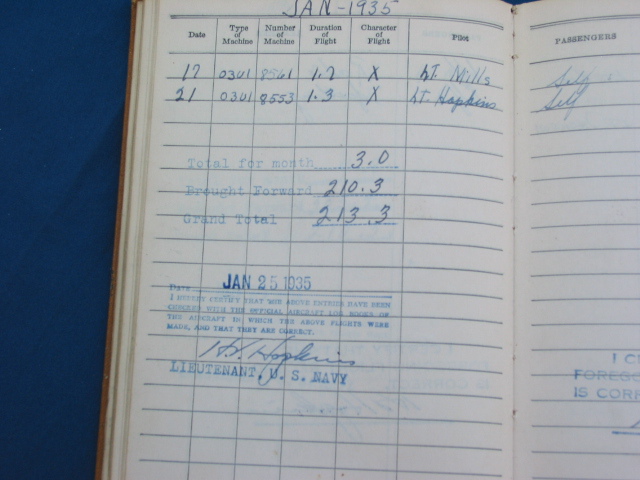 JAN-1935
Date Type of Machine Number of Machine Duration of Flight Character of Flight Pilot PASSENGERS
17 O3U1 8561 1.7 X Lt. Mills Self
21 O3U1 8553 1.3 X Lt. Hopkins Self
Total for month 3.0
Brought Forward 210.3
Grand Total 213.3
Date JAN 25 1935
I HEREBY CERTIFY THAT THE ABOVE ENTRIES HAVE BEEN
CHECKED WITH THE OFFICIAL AIRCRAFT LOG BOOKS OF
THE AIRCRAFT IN WHICH THE ABOVE FLIGHTS WERE
MADE, AND THAT THEY ARE CORRECT.
Hopkins
LIEUTENANT, U. S. NAVY
I C
FOREGO
IS CORR